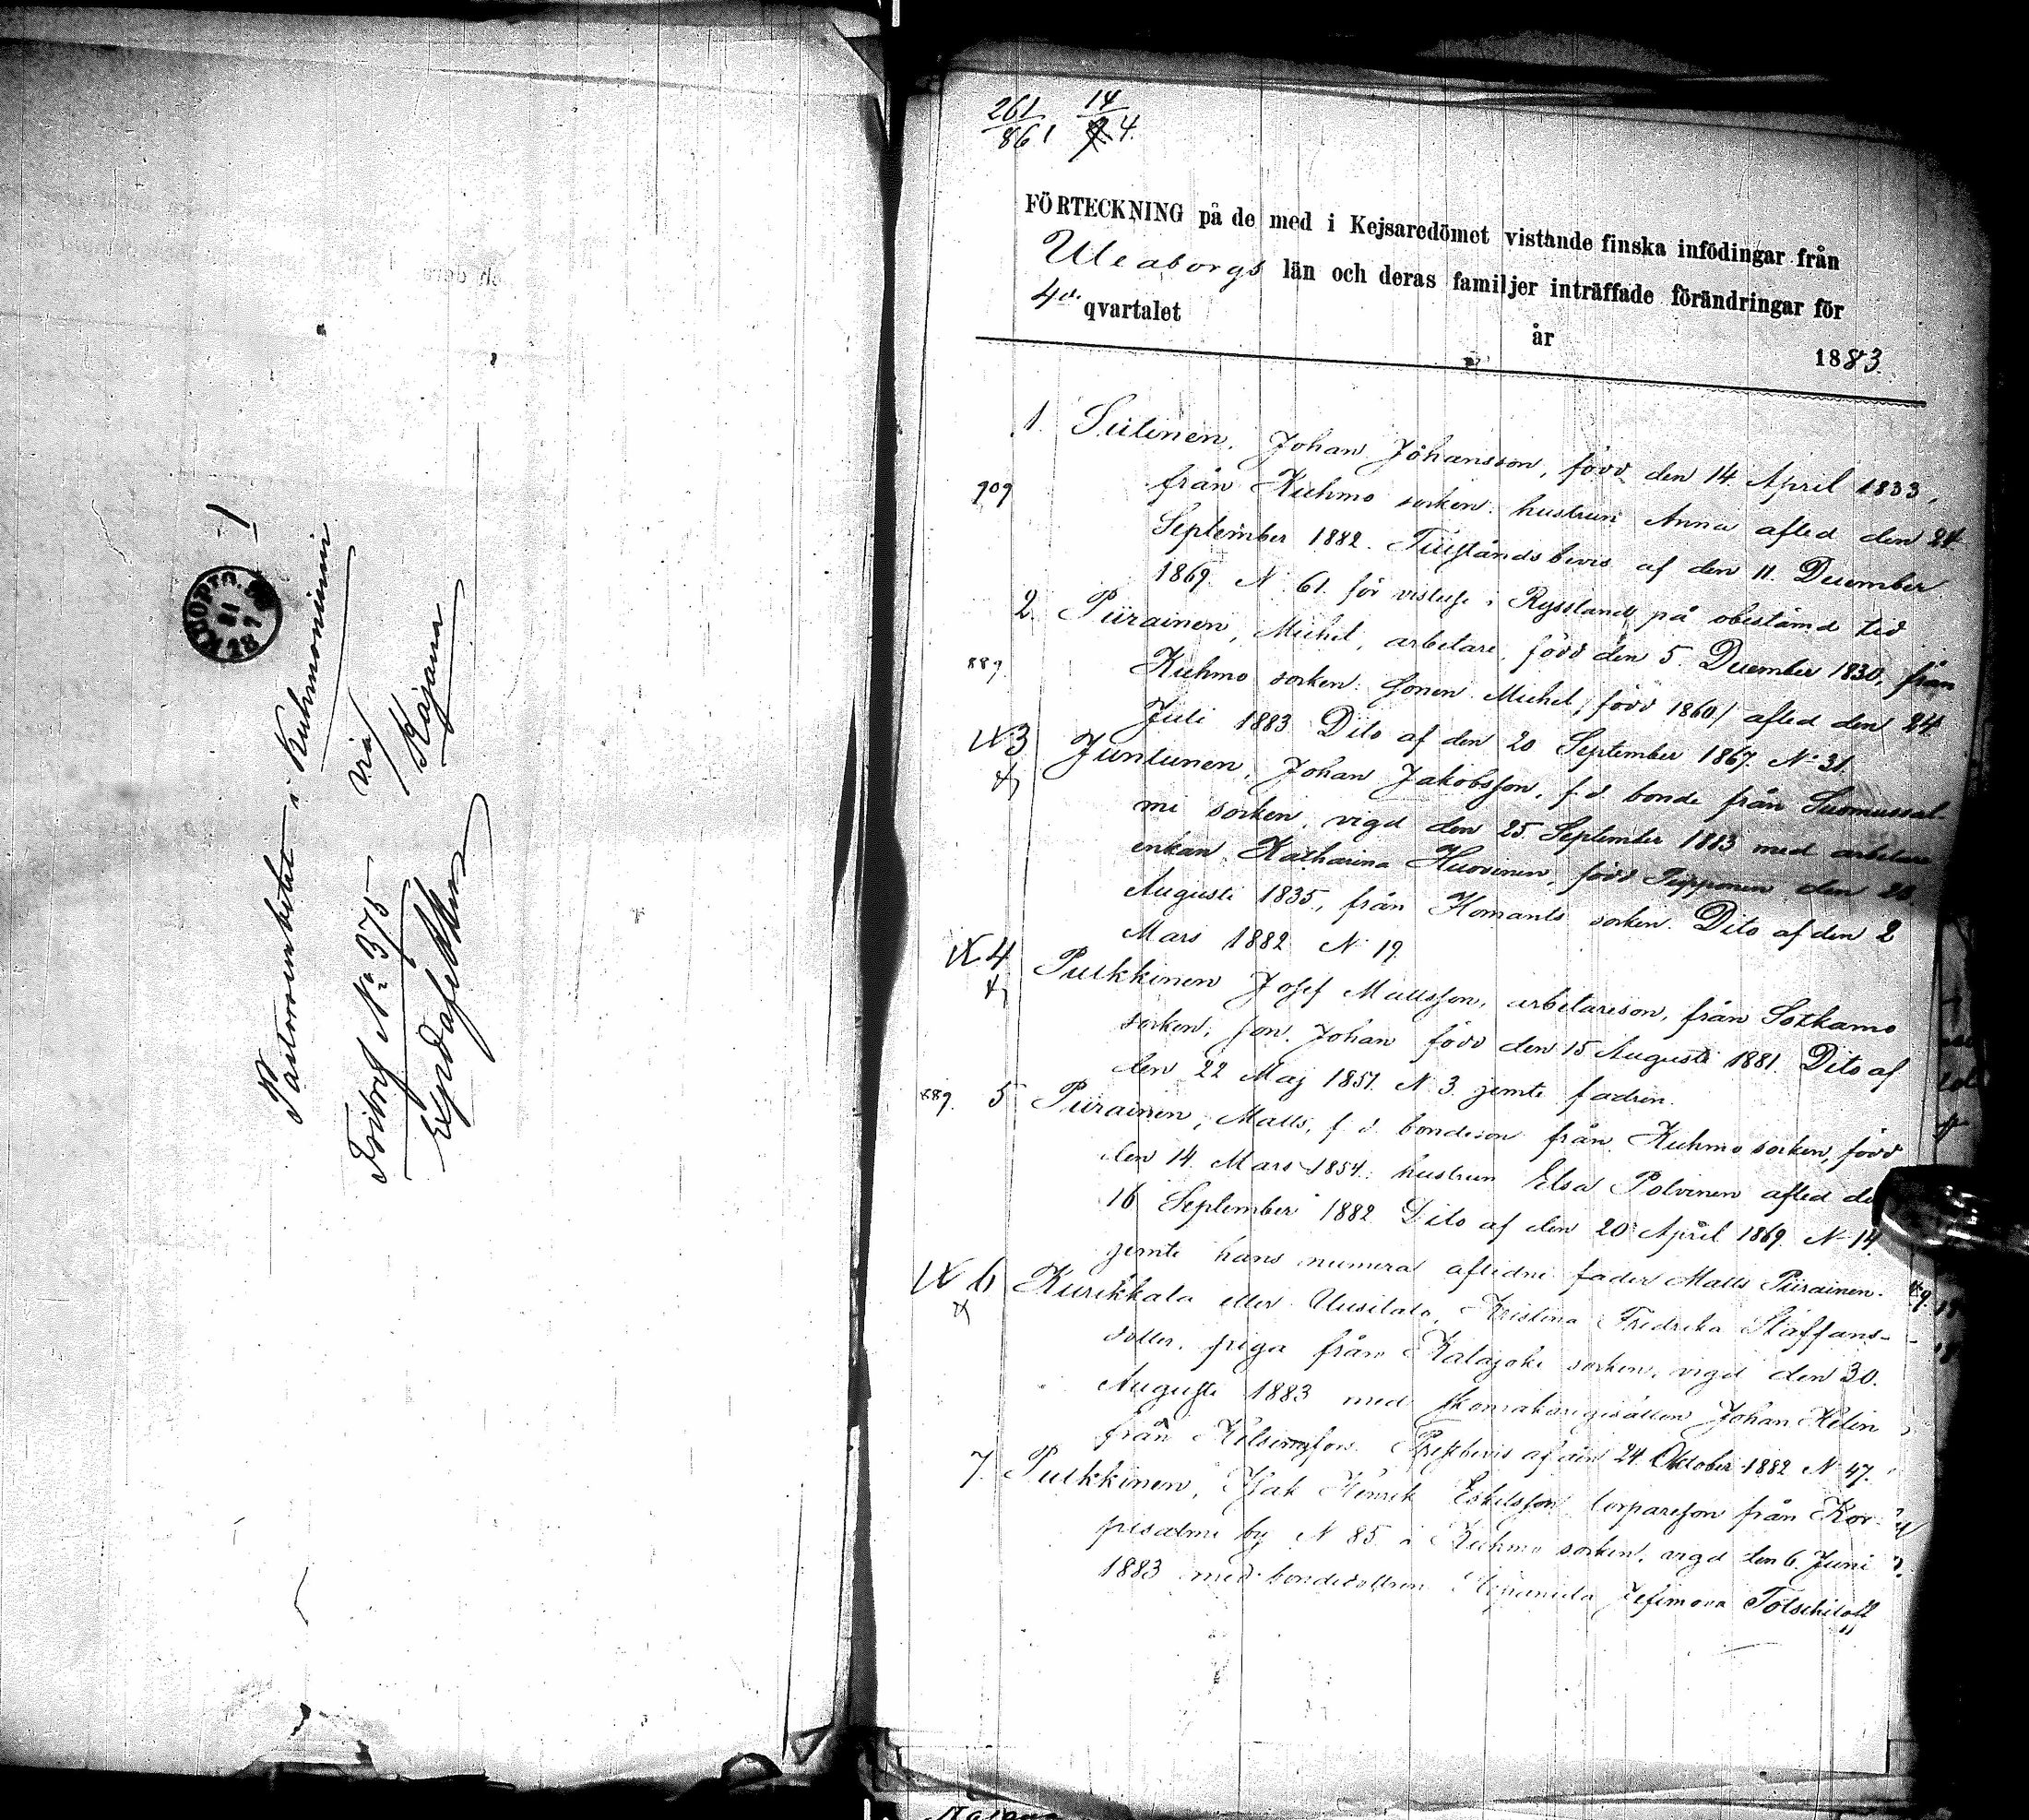 Pastorsembetet i Kuhmoniemi
via
Kajana
N:o 375
KUOPIO
261 14
861 4.
FÖRTECKNING på de med i Kejsaredömet vistande finska infödingar från
Uleaborgs län och deras familjer inträffade förändringar för
4de qvartalet år 1883.
1. Siitinen, Johan Johansson, född den 14 April 1833,
909 från Kuhmo socken: hustrun Anna afled den 24
September 1882. Tillståndsbevis af den 11. December
1869. N 61. för vistelse i Ryssland på obestämd tid
2. Piirainen, Michel, arbetare, född den 5. December 1830, från
889. Kuhmo socken: sonen Michel, född 1860, afled den 24
Juli 1883 Dito af den 20 September 1867. N:o 31.
3 Juntunen, Johan Jakobsson, f. d. bonde från Suomussal-
mi socken, vigd den 25 September 1883 med arbetare
enkan Katharina Huovinen, född Tepponen den 23
Augusti 1835, från Ilomants socken. Dito af den 2
Mars 1882 N 19.
4 Pulkkinen Josef Mattsson, arbetareson, från Sotkamo
socken; son Johan född den 15 Augusti 1881. Dito af
den 22 Maj 1851. N 3. jemte fadren.
889. 5 Piirainen, Matts, f. d. bondeson från Kuhmo socken, född
den 14. Mars 1854: hustrun Elsa Polvinen afled de
16 September 1882 Dito af den 20 April 1869. N 14.
jemte hans numera aflidne fader Matts Piirainen.
6 Kurikkala eller Uusitalo, Kristina Fredrika Staffans-
dotter, piga från Kalajoki socken, vigd den 30.
Augusti 1883 med skomakaregesällen Johan Helin
från Helsingfors. Prestbevis af den 24. Oktober 1882 N 47.
7. Pulkkinen, Isak Henrik Eskelsson torpareson från Kor-
pisalmi by N 85 i Kuhmo socken, vigd den 6 Juni
1883 med bondedottren Jefimova Totschiloff